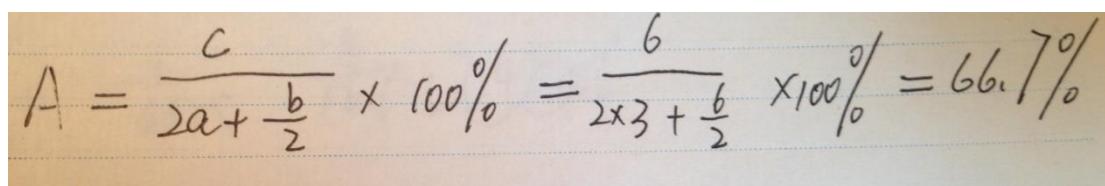 A = \frac{c}{2a + \frac{b}{2}} × 100% = \frac{6}{2×3 + \frac{6}{2}} ×100% = 66.7%